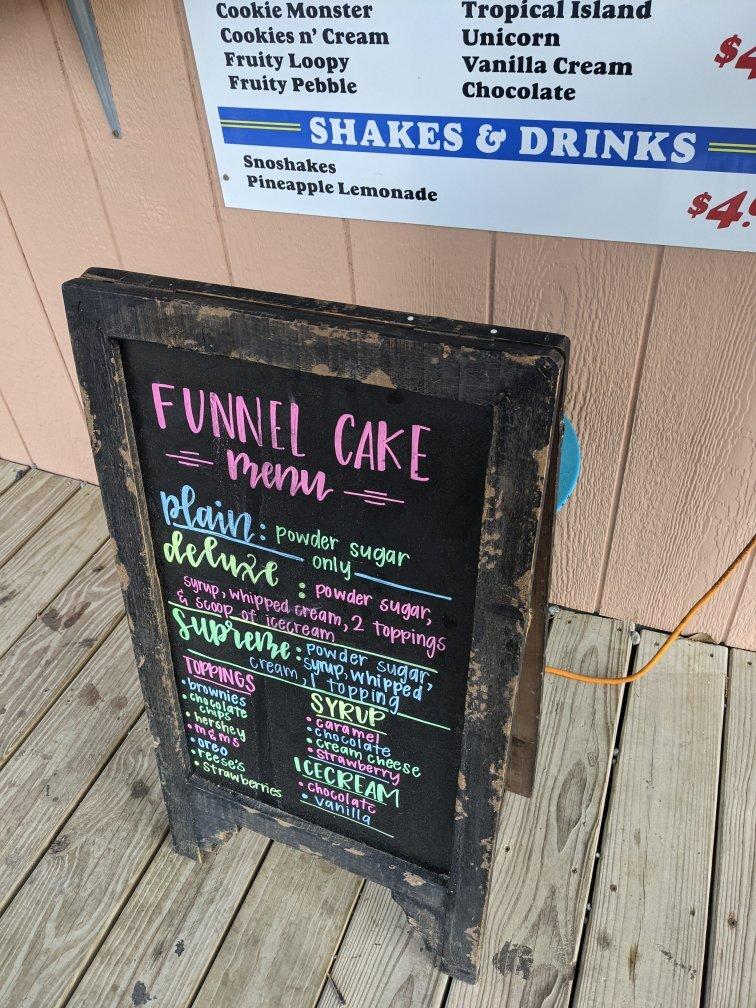 Cookie Monster
Cookies n' Cream
Fruity Loopy
Fruity Pebble
Tropical Island
Unicorn
Vanilla Cream
Chocolate
$4
SHAKES & DRINKS
Snoshakes
Pineapple Lemonade
$4.
FUNNEL CAKE
menu
plain: powder sugar
only
deluxe : powder sugar,
syrup, whipped cream, 2 toppings
& scoop of icecream
Supreme: powder sugar,
syrup, whipped
cream, 1 topping
TOPPINGS
• brownies
• chocolate
chips
• hershey
• m&ms
• oreo
• reese's
• strawberries
SYRUP
• caramel
• chocolate
• cream cheese
• strawberry
ICECREAM
• chocolate
• vanilla